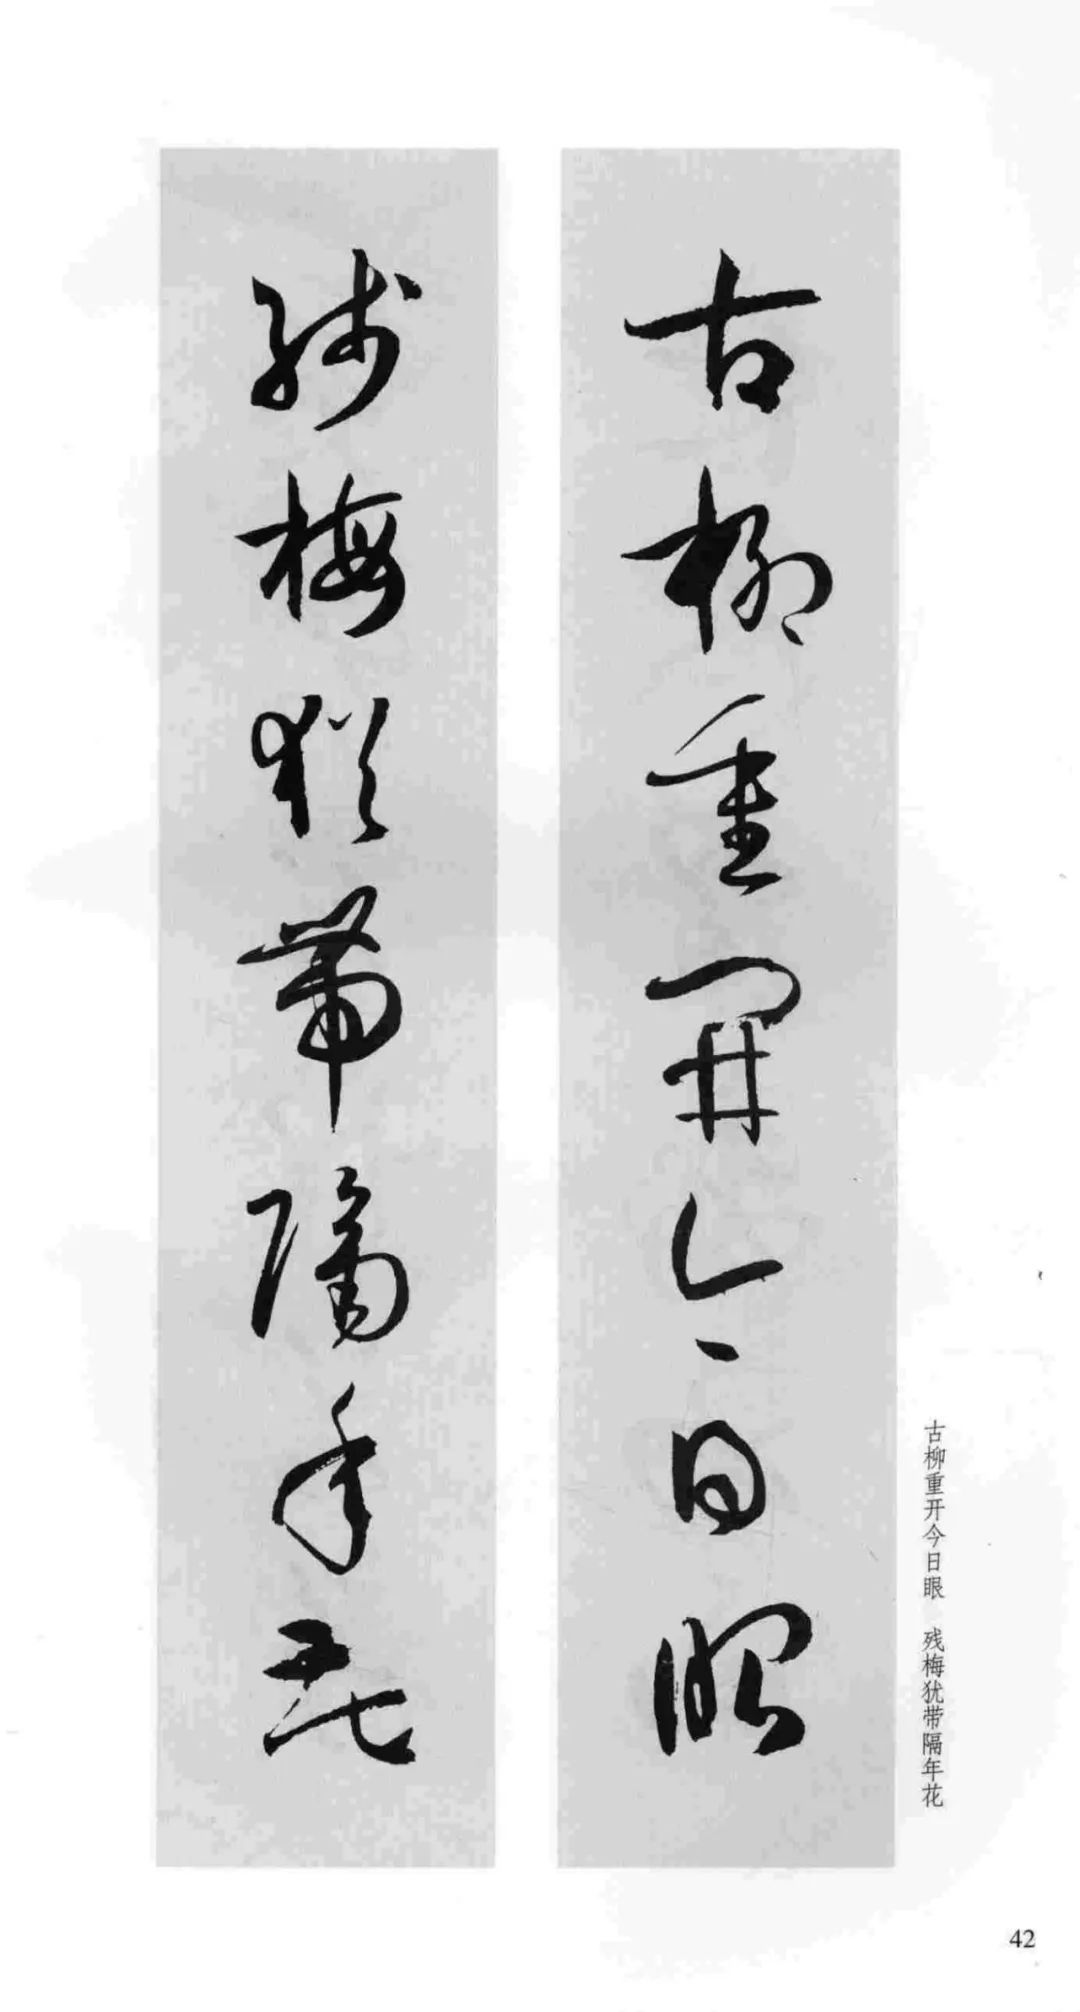 古柳重開今日眼
殘梅猶帶隔年花
古柳重开今日眼 残梅犹带隔年花
42